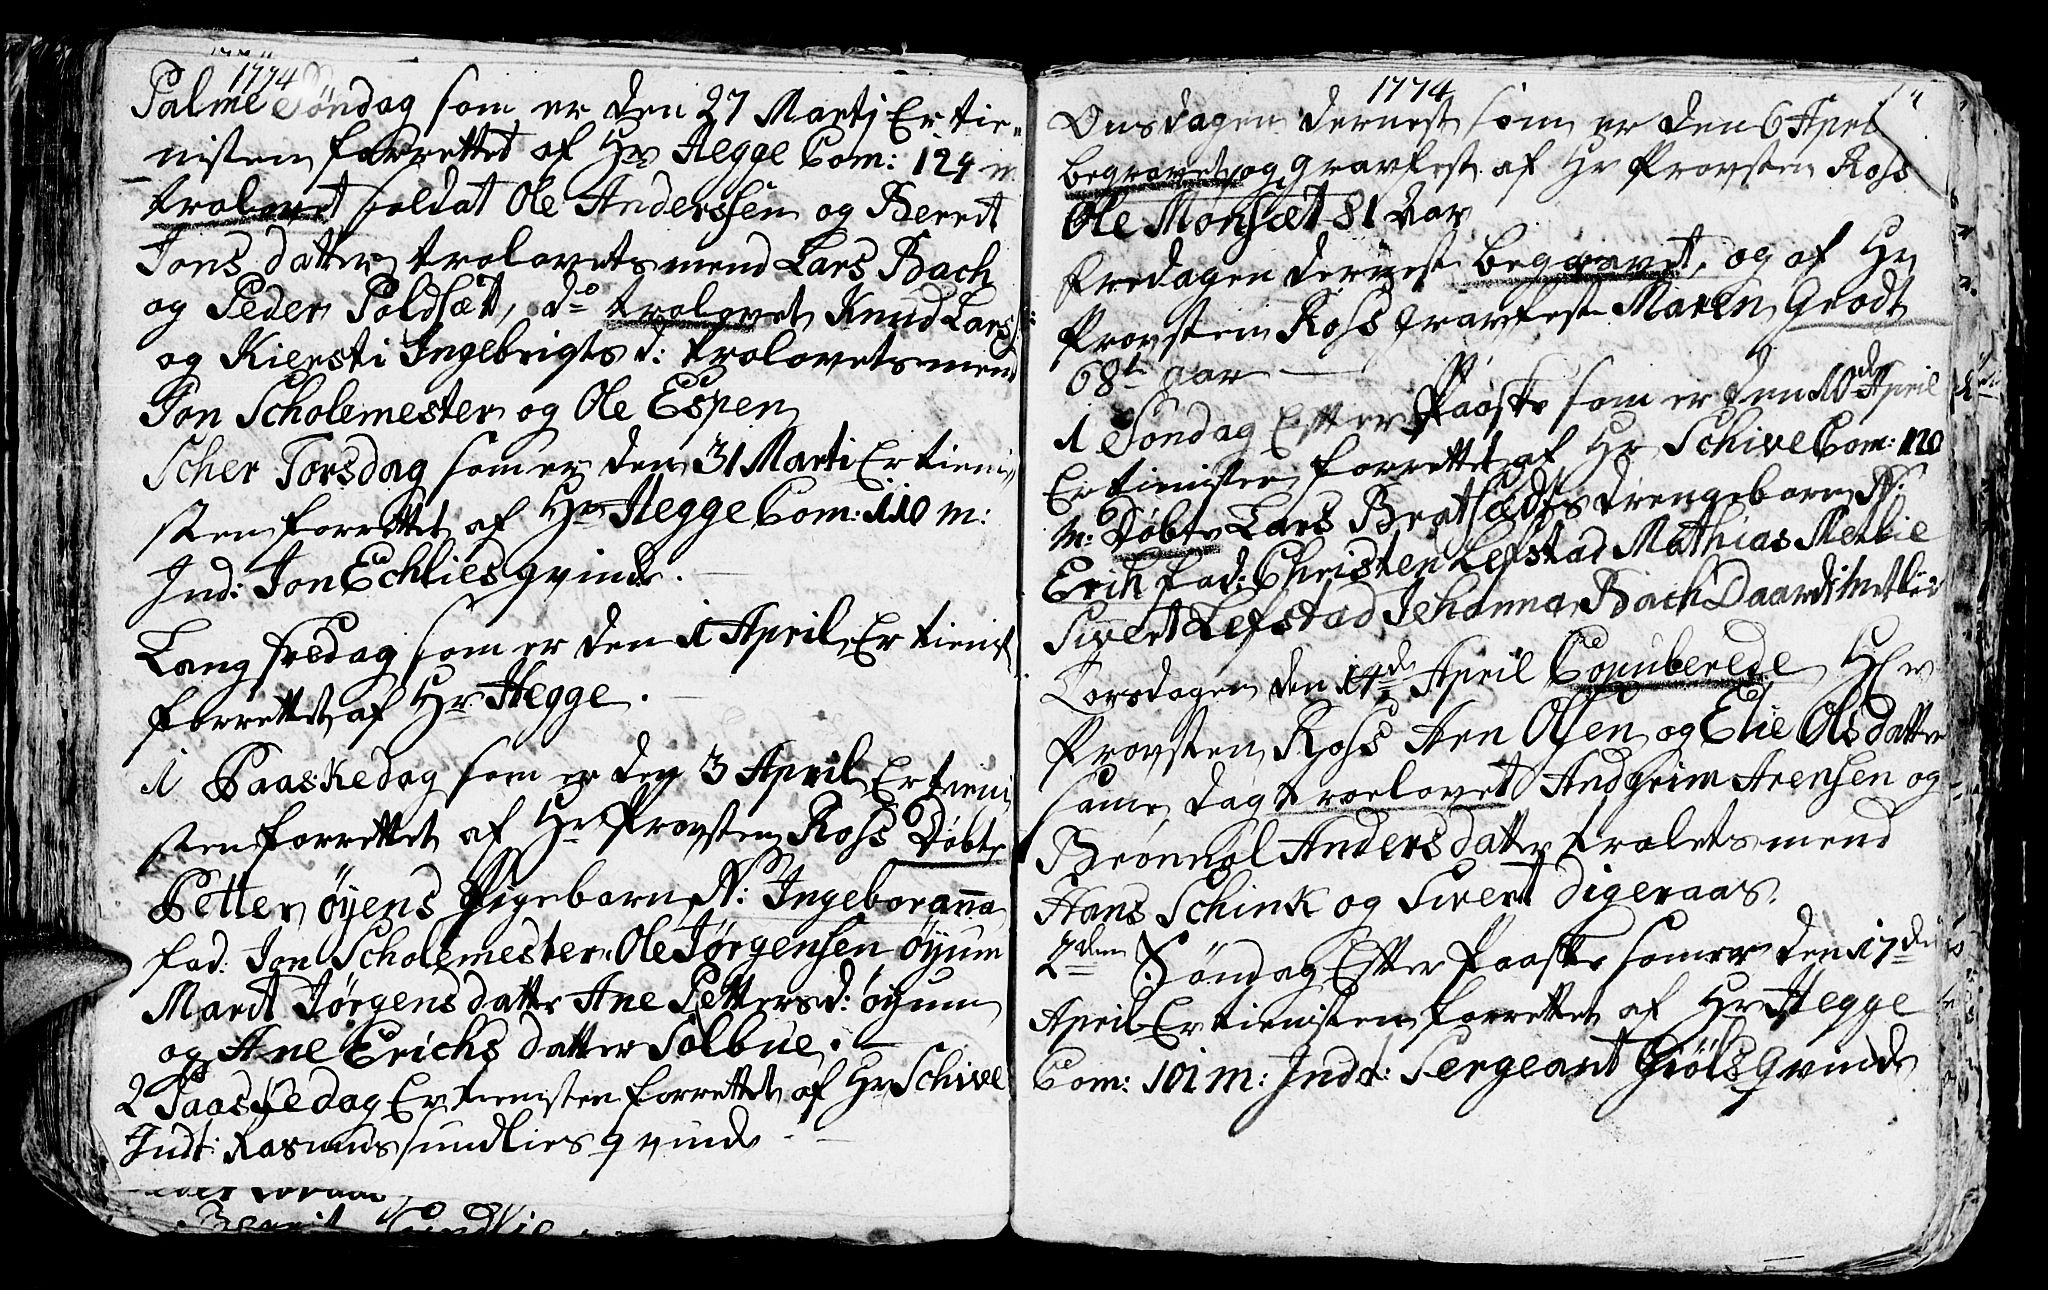 1774
Palme Søndag som er den 27 Martj Er tie-
nisten forrettet af Hr Hegge Com: 124 m
trolovet Soldat Ole Anderssen og Berret
Jons datter trolovets mend Lars Bach
og Peder Poldsæt, do trolovet Knud Lars
og Kiersti Ingebrigts d: trolovets mend
Jon Scholemester og Ole Espen
Scher Torsdag som er den 31 Marti Er tieni
sten forrettet af Hr Hegge Com: 110 m:
Ind: Jon Echlies qvinde.
Lang fredag som er den 1 April Er tienist
forrettet af Hr Hegge.
1 Paaskedag som er den 3 April Er tieni
sten forrettet af Hr Provsten Ross Døbte
Petter øyens Pigebarn N: Ingeboranna
fad: Jon Scholemester Ole Jørgensen øyum
Marit Jørgens datter Ane Petters d: øyum
og Ane Erichs datter Solbue.
2 Paaskedag Er tienisten forrettet af Hr Schive
Indt: Rasmus sundlies qvinde
1774
Onsdagen dernest som er den 6 Apel
begravet og gravfest af Hr Provsten Ross
Ole Monsæt 81 Aar
fredagen dernest begravet, og af Hr
Provsten Ross gravfest Maren Grodt
68te aar
1 Søndag Efter Paaske som er den 10de April
Er tienisten forrettet af Hr Schive Com: 120
m: Døbte Lars Bratsædts drengebarn N:
Erik fad: Christen Lefstad Mathias Metlie
Sivert Lefstad Jehanna Bach Daardi metlie
Torsdagen den 14de April Copuberede Hr
Provsten Ross Aen Olsen og Elie Olsdatter
samme dag troelovet Andgrim Arensen og
Brønnol Anders datter trolets mend
Hans Schink og Sivert digeraas.
2den Søndag Efter Paaske som er den 17de
April Er tienisten forrettet af Hr Hegge
Com: 101 m: Indt: Sergeant Giøls qvinde